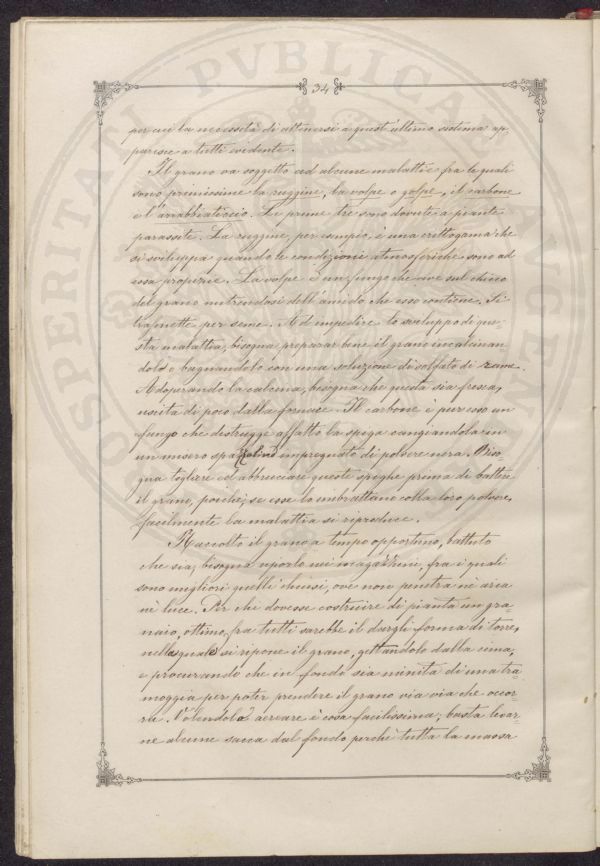 34
per cui la necessità di attenersi a quest'ultimo sistema ap-
parisce a tutti evidente.
Il grano va soggetto ad alcune malattie fra le quali
sono primissime la ruggine, la volpe o golpe, il carbone
e l'arrabbiaticcio. Le prime tre sono dovute a piante
parassite. La ruggine, per esempio, è una crittogama che
si sviluppa quando le condizioni atmosferiche sono ad
essa propizie. La volpe è un fungo che vive sul chicco
del grano nutrendosi dell'amido che esso contiene. Si
trasmette per seme. Ad impedire lo sviluppo di que-
sta malattia, bisogna preparar bene il grano incalcinan
dolo o bagnandolo con una soluzione di solfato di rame.
Adoperando la calcina, bisogna che questa sia fresca,
uscita di poco dalla fornace. Il carbone è pur esso un
fungo che distrugge affatto la spiga cangiandola in
un misero spazzolino impregnato di polvere nera. Biso
gna togliere ed abbruciare queste spighe prima di battere
il grano, poichè, se esse lo imbrattano colla loro polvere,
facilmente la malattia si riproduce.
Raccolto il grano a tempo opportuno, battuto
che sia, bisogna riporlo nei magazzini, fra i quali
sono migliori quelli chiusi, ove non penetra nè aria
nè luce. Per chi dovesse costruire di pianta un gra-
naio, ottimo fra tutti sarebbe il dargli forma di torre,
nella quale si ripone il grano, gettandolo dalla cima,
e procurando che in fondo sia munita di una tra-
moggia per poter prendere il grano via via che occor-
re. Volendolo aereare è cosa facilissima; basta levar-
ne alcune sacca dal fondo perchè tutta la massa
PROSPERITATI PVBLICAE AVGENDAE